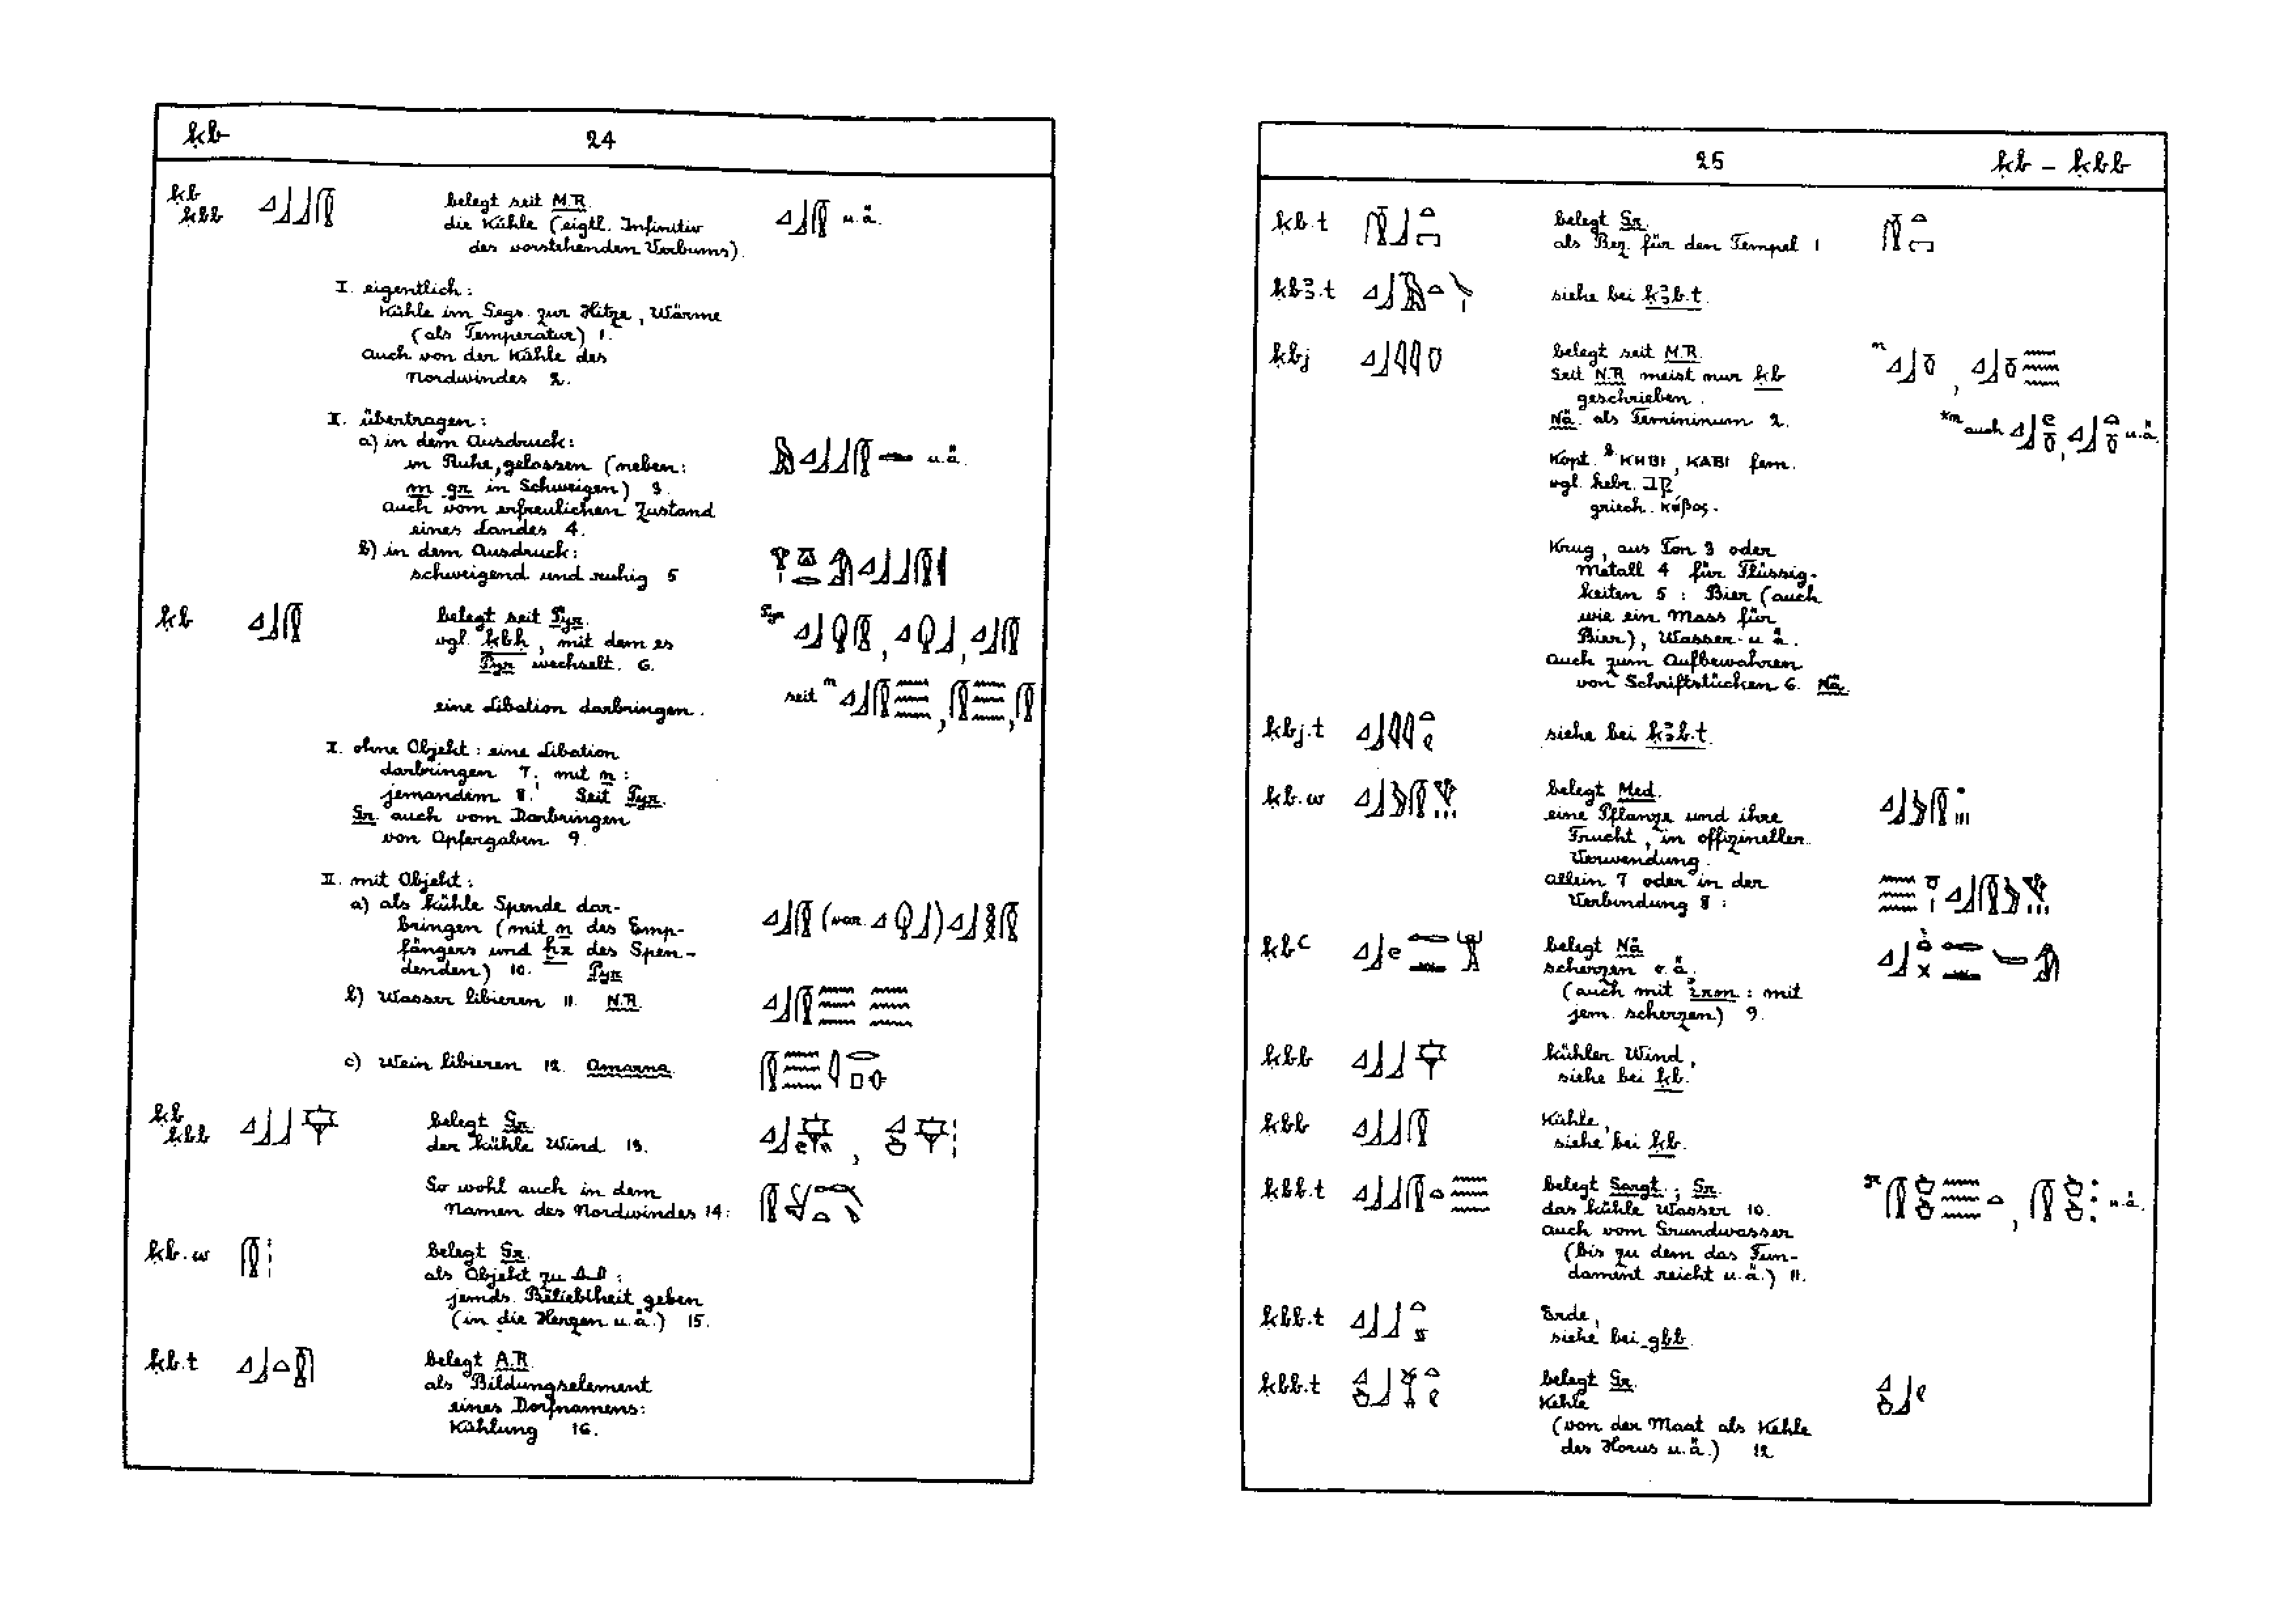 ḳb
24
ḳb
ḳbb
belegt seit M.R.
die Kühle (eigtl. Infinitiv
des vorstehenden Verbums).
u. ä.
I. eigentlich:
Kühle im Gegs. zur Hitze, Wärme
(als Temperatur) 1.
Auch von der Kühle des
Nordwindes 2.
II. übertragen:
a) in dem Ausdruck:
u. ä.
in Ruhe, gelassen (neben:
m gr in Schweigen) 3.
Auch vom erfreulichen Zustand
eines Landes 4.
b) in dem Ausdruck:
schweigend und ruhig 5
ḳb
belegt seit Pyr.
Pyr
vgl. ḳbḥ, mit dem es
Pyr wechselt. 6.
seit n
eine Libation darbringen.
I. ohne Objekt: eine Libation
darbringen 7; mit n:
jemandem 8. Seit Pyr.
Gr. auch vom Darbringen
von Opfergaben 9.
II. mit Objekt:
a) als kühle Spende dar-
(var.
)
bringen (mit n des Emp-
fängers und ḫr des Spen-
denden) 10. Pyr
b) Wasser libieren 11. N.R.
c) Wein libieren 12. Amarna.
ḳb
ḳbb
belegt Gr.
der kühle Wind 13.
So wohl auch in dem
Namen des Nordwindes 14:
ḳb.w
belegt Gr.
als Objekt zu
:
jemds. Beliebtheit geben
(in die Herzen u. ä.) 15.
ḳb.t
belegt A.R.
als Bildungselement
eines Dorfnamens:
Kühlung 16.
25
ḳb – ḳbb
ḳb.t
belegt Gr.
als Bez. für den Tempel 1
ḳbꜣ.t
siehe bei ḳꜣb.t.
ḳbj
belegt seit M.R.
n
Seit N.R meist nur ḳb
geschrieben.
Nä. als Femininum 2.
*m auch
u. ä.
Kopt. S ⲕⲏⲃⲓ, ⲕⲁⲃⲓ fem.
vgl. hebr. קַב
griech. κάβος.
Krug, aus Ton 3 oder
Metall 4 für Flüssig-
keiten 5: Bier (auch
wie ein Mass für
Bier), Wasser u. ä.
Auch zum Aufbewahren
von Schriftstücken 6. Nä.
ḳbj.t
siehe bei ḳꜣb.t.
ḳb.w
belegt Med.
eine Pflanze und ihre
Frucht, in offizineller
Verwendung.
Allein 7 oder in der
Verbindung 8:
ḳbꜥ
belegt Nä
scherzen o. ä.
(auch mit irm: mit
jem. scherzen) 9.
ḳbb
kühler Wind,
siehe bei ḳb.
ḳbb
Kühle,
siehe bei ḳb.
ḳbb.t
belegt Sargt.; Gr.
gr
u. ä.
das kühle Wasser 10.
Auch vom Grundwasser
(bis zu dem das Fun-
dament reicht u. ä.) 11.
ḳbb.t
Erde,
siehe bei gbb.
ḳbb.t
belegt Gr.
Kehle
(von der Maat als Kehle
des Horus u. ä.) 12